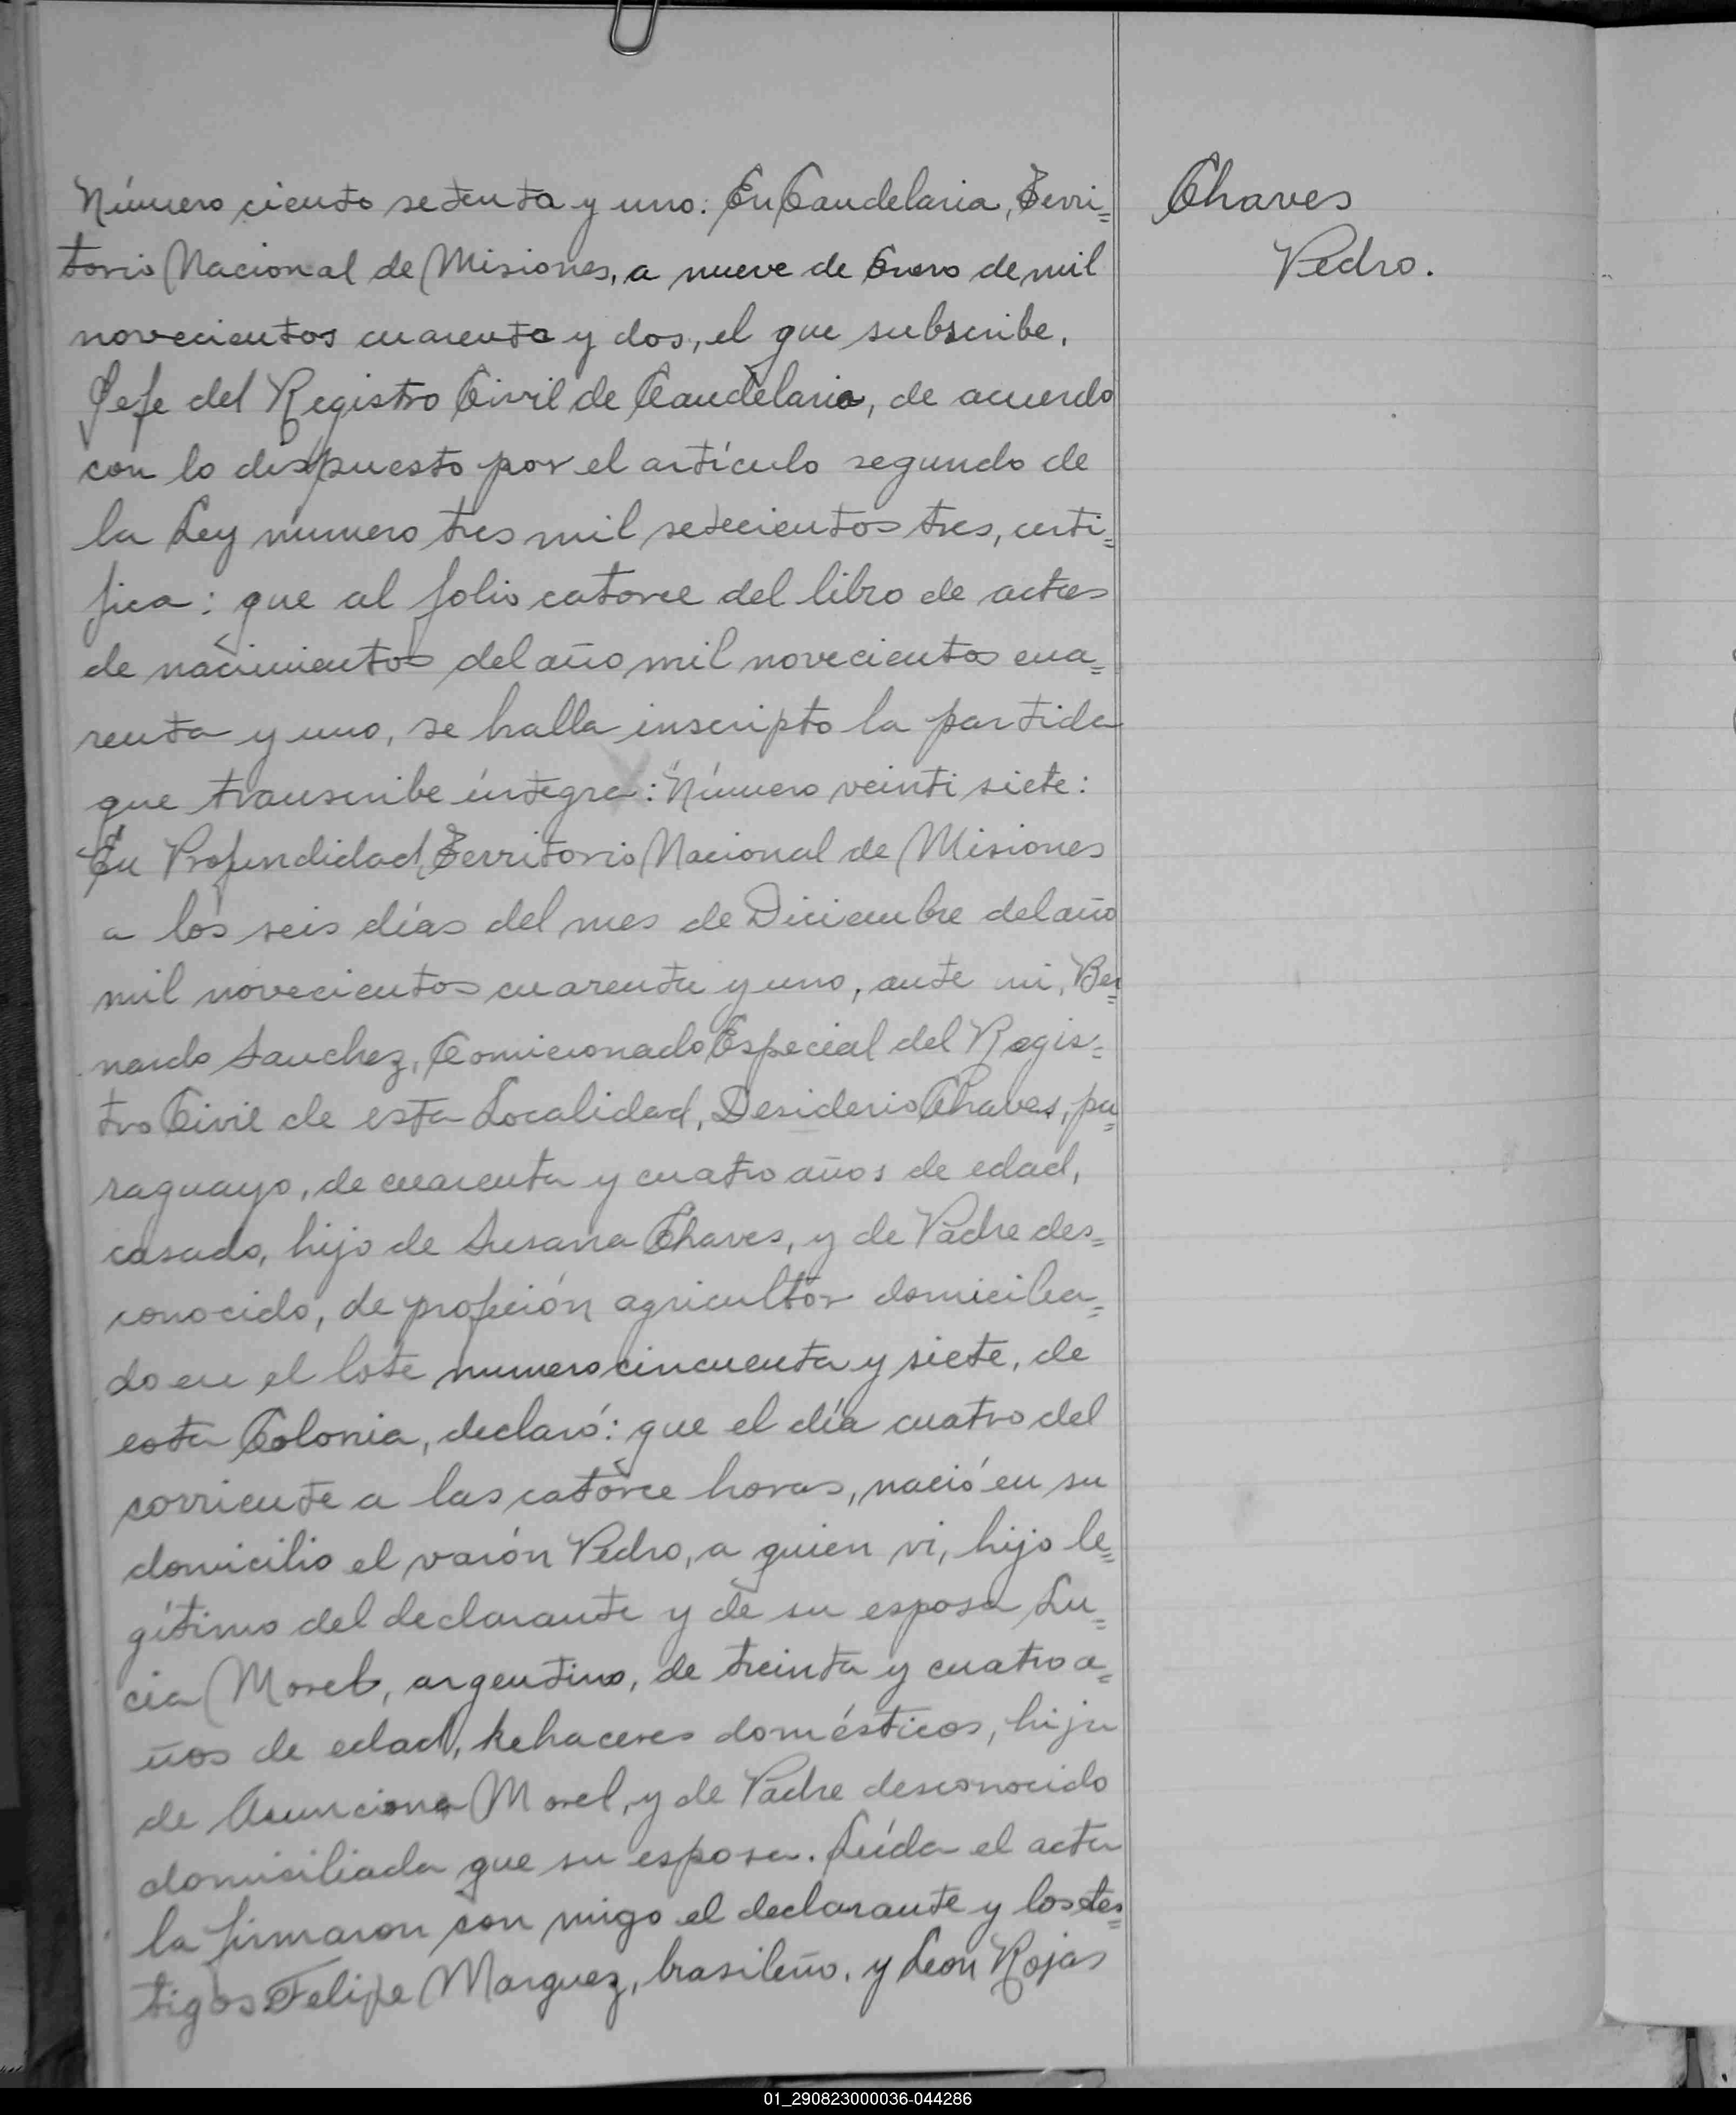 Número ciento setenta y uno: En Candelaria, Terri=
torio Nacional de Misiones, a nueve de Enero de mil
novecientos cuarenta y dos, el que subscribe,
Jefe del Registro Civil de Candelaria, de acuerdo
con lo dispuesto por el artículo segundo de
la Ley número tres mil setecientos tres, certi=
fica: que al folio catorce del libro de actas
de nacimientos del año mil novecientos cua=
renta y uno, se halla inscripto la partida
que transcribe íntegra: "Número veinti siete:
En Profundidad, Territorio Nacional de Misiones
a los seis días del mes de Diciembre del año
mil novecientos cuarenta y uno, ante mi, Ber=
nardo Sanchez, Comicionado Especial del Regis=
tro Civil de esta Localidad, Desiderio Chaves, pa=
raguayo, de cuarenta y cuatro años de edad,
casado, hijo de Susana Chaves, y de Padre des=
conocido, de profeción agricultor domicilia=
do en el lote numero cincuenta y siete, de
esta Colonia, declaró: que el día cuatro del
corriente a las catorce horas, nació en su
domicilio el varón Pedro, a quien vi, hijo le=
gítimo del declarante y de su esposa Lu=
cia Morel, argentina, de treinta y cuatro a=
ños de edad, kehaceres domésticos, hija
de Asunciona Morel, y de Padre desconocido
domiciliada que su esposa. Leída el acta
la firmaron con migo el declarante y los tes=
tigos Felipe Marquez, brasileño, y Leon Rojas
Chaves
Pedro.
01_290823000036-044286